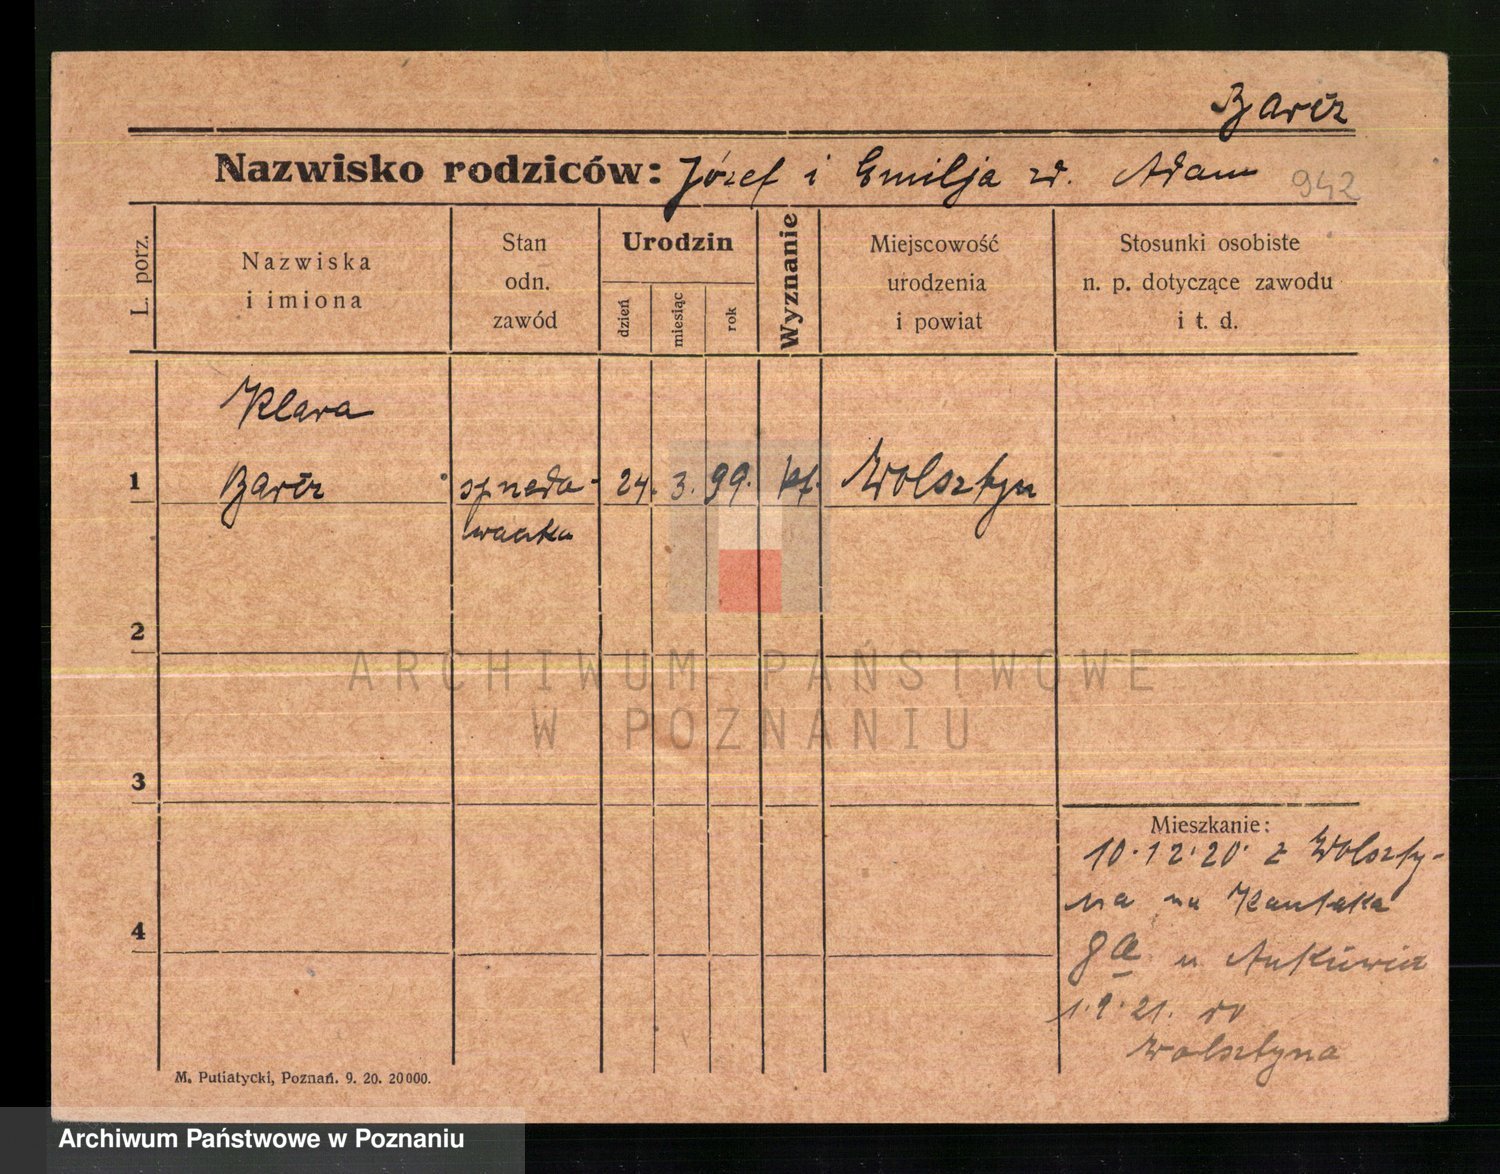 Nazwisko rodziców: Józef i Emilja zd. Adam 942
L. porz.
Nazwiska
i imiona
Stan
odn.
zawód
Urodzin
dzień
miesiąc
rok
Wyznanie
Miejscowość
urodzenia
i powiat
Stosunki osobiste
n. p. dotyczące zawodu
i t. d.
Klara
1 spneda- 24. 3. 99. kf. Wolsztyn
2
3
4
Mieszkanie:
10.12.20. z Wolszty-
na na Kantaka
8a u
1.9.21. do
Wolsztyna
M. Putiatycki, Poznań. 9. 20. 20000.
ARCHIWUM PAŃSTWOWE
W POZNANIU
Archiwum Państwowe w Poznaniu